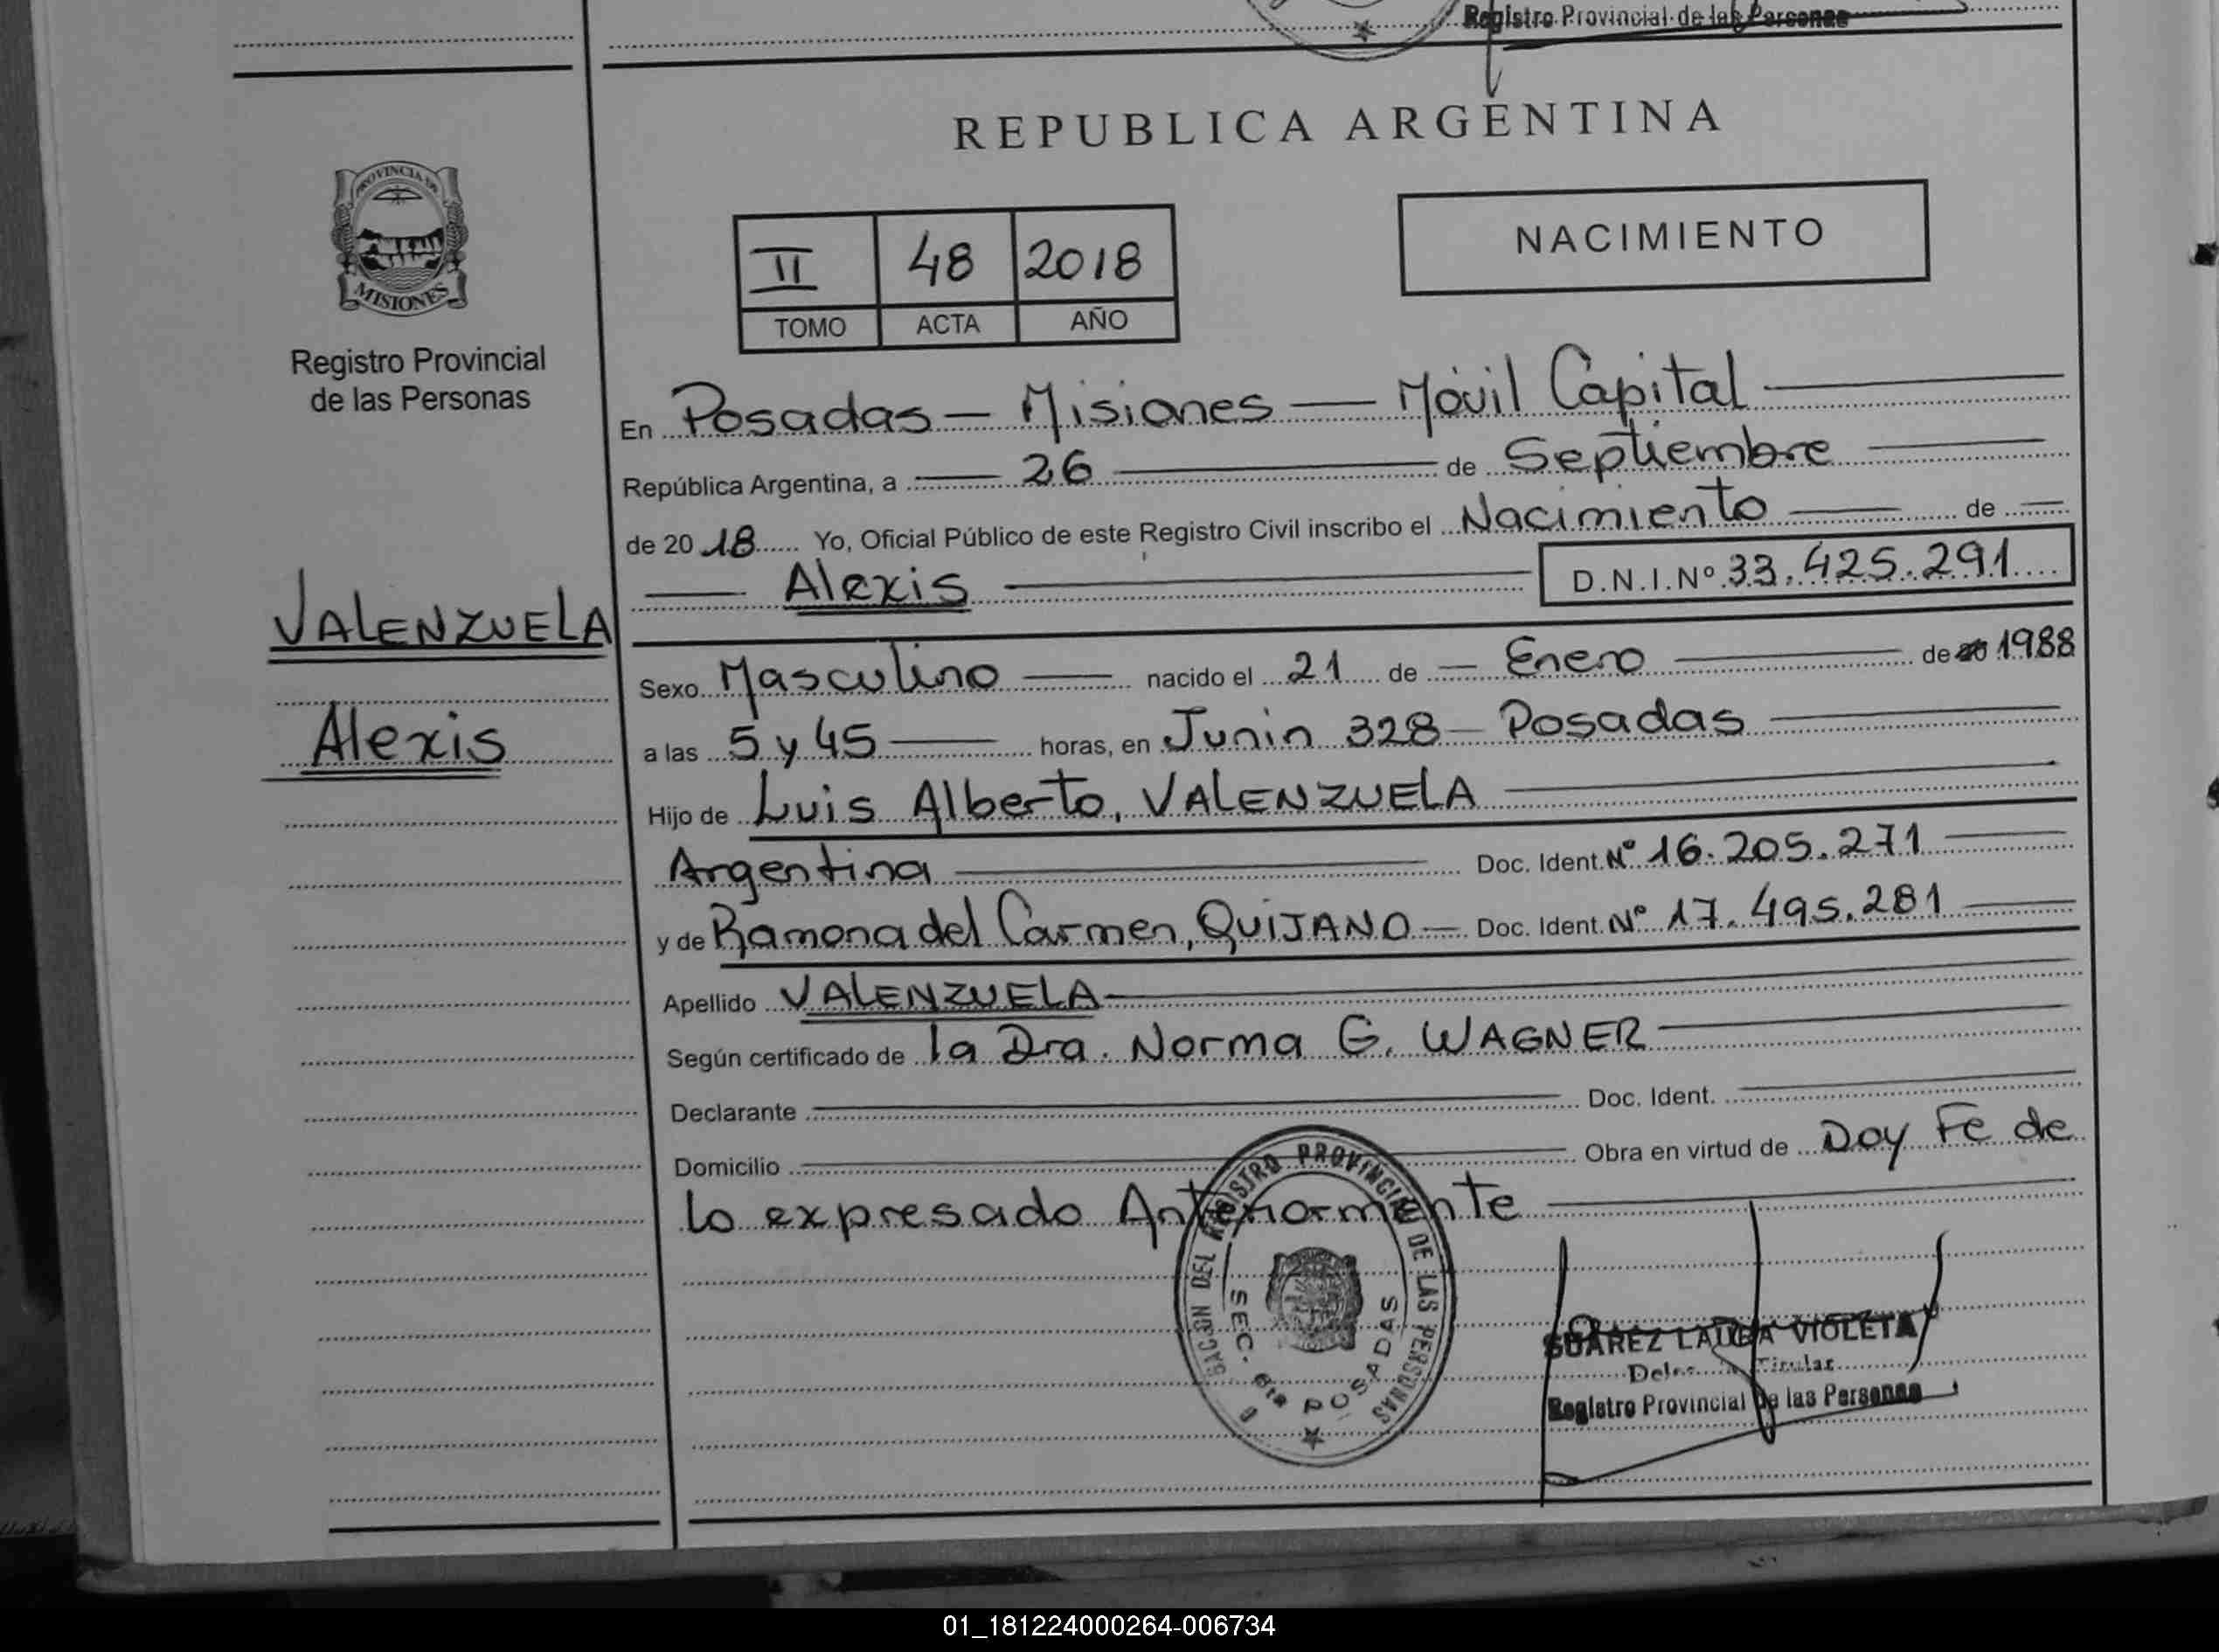 Registro Provincial de las Personas
REPUBLICA ARGENTINA
PROVINCIA DE
MISIONES
Registro Provincial
de las Personas
VALENZUELA
Alexis
II 48 2018
TOMO ACTA AÑO
NACIMIENTO
En Posadas — Misiones — Móvil Capital
República Argentina, a 26 de Septiembre
de 2018 Yo, Oficial Público de este Registro Civil inscribo el Nacimiento de
Alexis D.N.I.Nº 33.425.291
Sexo Masculino nacido el 21 de Enero de 1988
a las 5 y 45 horas, en Junin 328 - Posadas
Hijo de Luis Alberto, VALENZUELA
Argentina Doc. Ident. Nº 16.205.271
y de Ramona del Carmen, QUIJANO — Doc. Ident. Nº 17.495.281
Apellido VALENZUELA
Según certificado de la Dra. Norma G. WAGNER
Declarante Doc. Ident.
Domicilio Obra en virtud de Doy Fe de
lo expresado Anteriormente
DEL REGISTRO PROVINCIAL DE LAS PERSONAS
SEC. 6ta POSADAS
SUAREZ LAURA VIOLETA
Titular
Registro Provincial de las Personas
01_181224000264-006734